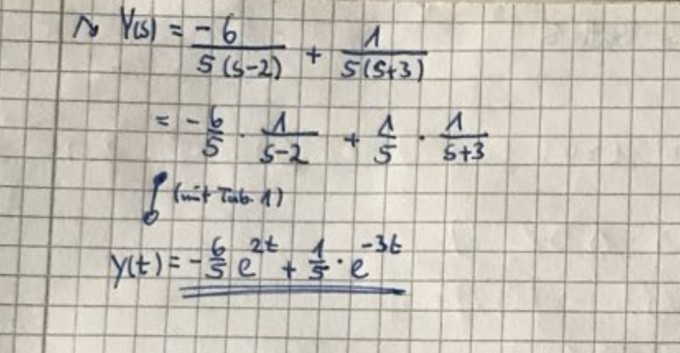 ⤳ Y(s) = -6/5(s-2) + 1/5(s+3)
= -6/5 · 1/s-2 + 1/5 · 1/s+3
(mit Tab. 1)
y(t) = -6/5 e^2t + 1/5 · e^-3t